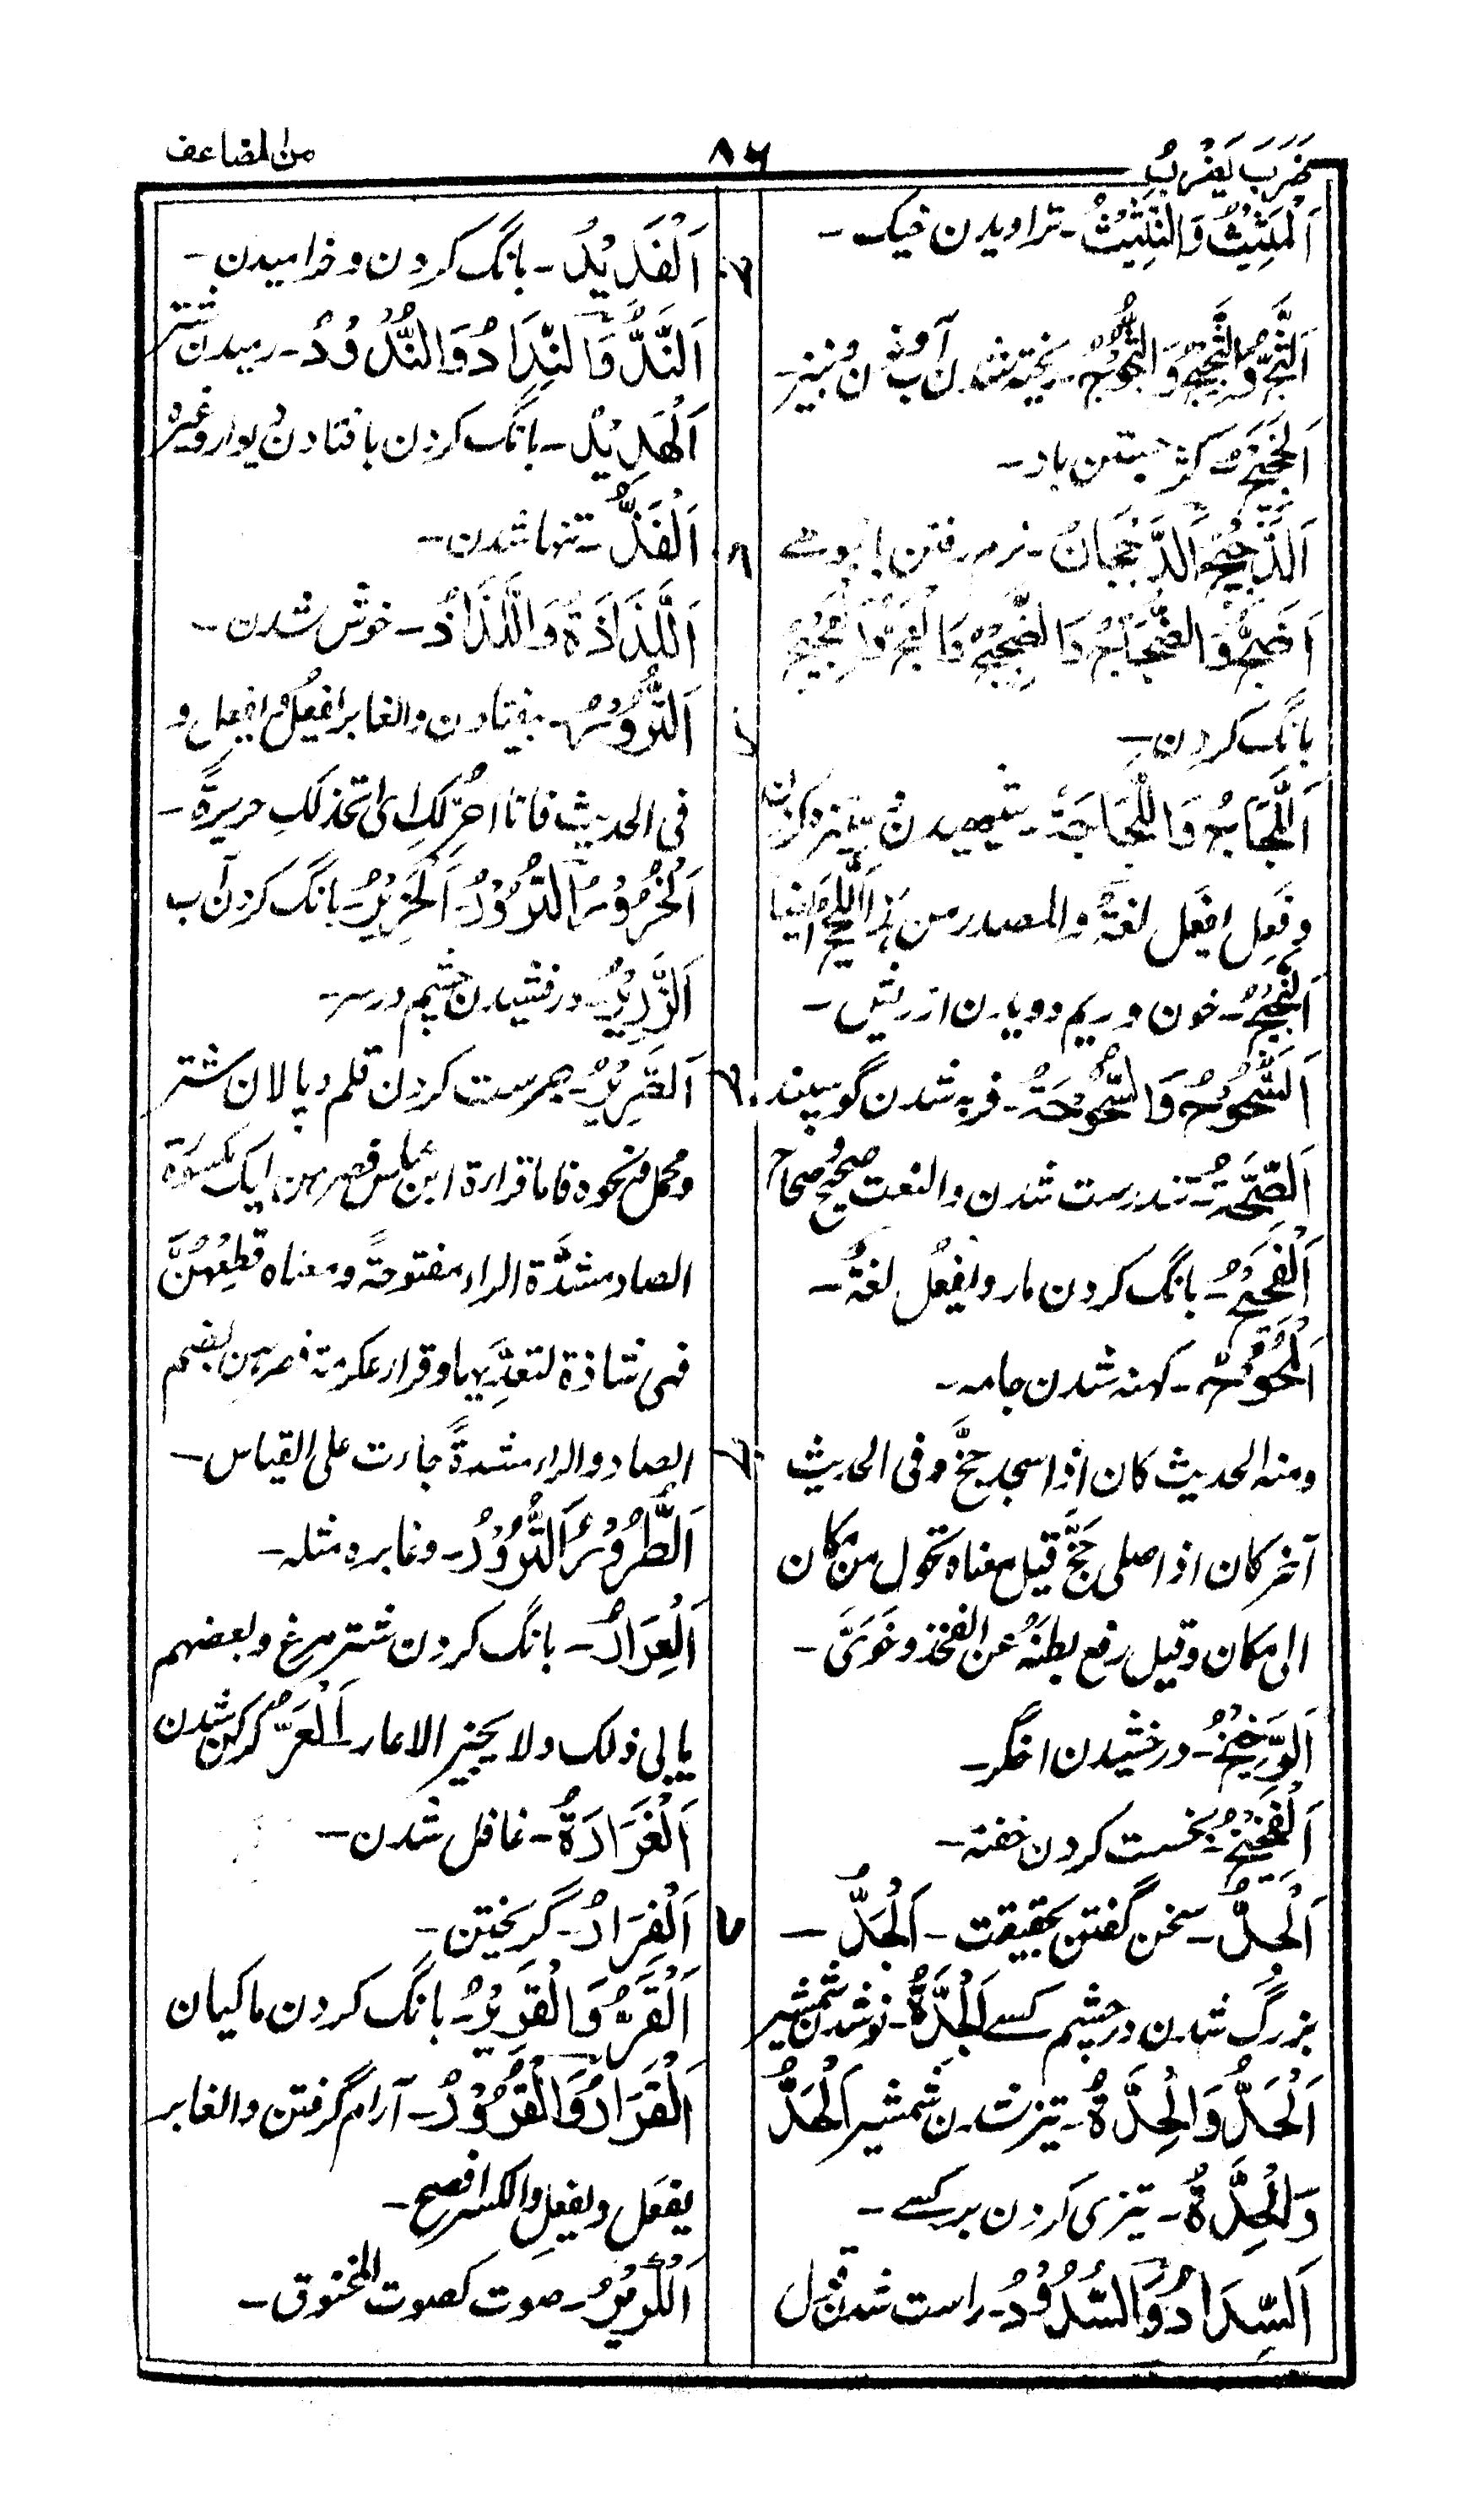 ضَرَبَ يَضْرِبُ
۸۶
من المضاعف
اَلْمَثِيْثُ وَالنَّثِيْثُ - تراویدن خیک -
اَلثَّجُّ وَالثَّجِيْجُ وَالثُّجُوْجُ - ریخته شدن آب و خون و نیز -
اَلْخَجِيْجُ - کژ جستن باد -
اَلدَّجِيْجُ الدَّجَجَانُ - نرم رفتن
بانگ کردن -
اَللَّجَاجُ وَاللَّجَاجَةُ - ستیهیدن
وفعِل افعَل لغةٌ والمصدر من هذا اللجج ایضا
اَلنَّجِيْجُ - خون و ریم دویدن از ریش -
اَلسُّحُوْحُ وَالسُّحُوْحَةُ - فربه شدن گوسپند
اَلصِّحَّةُ - تندرست شدن والنعت صحیح و صحاح
اَلْفَحِيْحُ - بانگ کردن مار ویفعُل لغةٌ -
اَلْمُحُوْحُ - کهنه شدن جامه -
ومنه الحدیث کان اذا سجد جخّ وفی الحدیث
آخر کان اذا صلی جَخَّ قیل معناه تحول من مکان
الی مکان وقیل رفع بطنهٗ عن الفخذ وخوّی -
اَلْوَخِيْخُ - درخشیدن اخگر -
اَلْفَخِيْخُ - خست کردن خفته -
اَلْجِدُّ - سخن گفتن بحقیقت - اَلْجَدُّ -
بزرگ شدن در چشم کسے اَلْجِدَّةُ - نو شدن شمشیر
اَلْحَدُّ وَالْحِدَّةُ - تیز شدن شمشیر اَلْحَدُّ
وَالْحِدَّةُ - تیزی کردن بر کسے -
اَلسِّدَادُ وَالسُّدُوْدُ - راست شدن
اَلْفَدِيْدُ - بانگ کردن و خرامیدن -
اَلنَّدُّ وَالنِّدَادُ وَالنُّدُوْدُ - رمیدن شتر
اَلْهَدِيْدُ - بانگ کردن بافتادن دیوار وغیره
اَلْفَذُّ - تنها شدن -
اَللَّذَاذَةُ وَاللَّذَاذُ - خوش شدن -
اَلتُّرُوْرُ - بیفتادن والغابر افعُل و افعِل و
فی الحدیث فانا احرّ لکِ ای اتخذ لکِ حریرةً -
اَلْخُرُوْرُ التُّرُوْرُ - اَلْخَرِيْرُ - بانگ کردن آب
اَلزَّرِيْرُ - درفشیدن چشم در سر -
اَلصَّرِيْرُ - جرست کردن قلم و پالان شتر
ومحمل ونحوه فاما قراءة ابن عباس فصرهن الیک بکسرة
الصاد مشدّدة الراء مفتوحةً ومعناه قطِّعْهُنَّ
فهی شاذة لتعدّیها وقراء عکرمة فصرهن بضم
الصاد والراء مشددةً جاءت علی القیاس -
اَلطُّرُوْرُ التُّرُوْرُ - وغابره مثله -
اَلْعِرَارُ - بانگ کردن شتر مرغ وبعضهم
یابی ذلک ولا یجیز الا عار اَلْعَرُّ گرگین شدن
اَلْغَرَارَةُ - غافل شدن -
اَلْفِرَارُ - گریختن -
اَلْقَرُّ وَالْقَرِيْرُ - بانگ کردن ماکیان
اَلْقَرَارُ وَالْقُرُوْرُ - آرام گرفتن والغابر
یفعَل ویفعِل والکسر افصح -
اَلْكَرِيْرُ - صوت کصوت المخنوق -